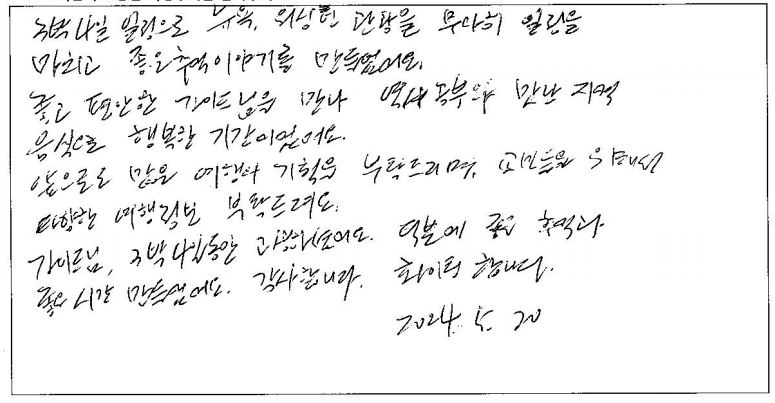 3박4일 일정으로 뉴욕, 워싱턴 관광을 무사히 일정을
마치고 좋은 추억 이야기를 만들었어요.
좋고 편안한 가이드님을 만나 역사 공부와 만난 지역
음식으로 행복한 기간이었어요.
앞으로도 많은 여행사 기획을 부탁드리며, 교민들을 위해서
다양한 여행정보 부탁드려요.
가이드님, 3박4일동안 고생하셨어요. 덕분에 좋은 추억과
좋은 시간 만들었어요. 감사합니다. 화이팅 합니다.
2024. 5. 20